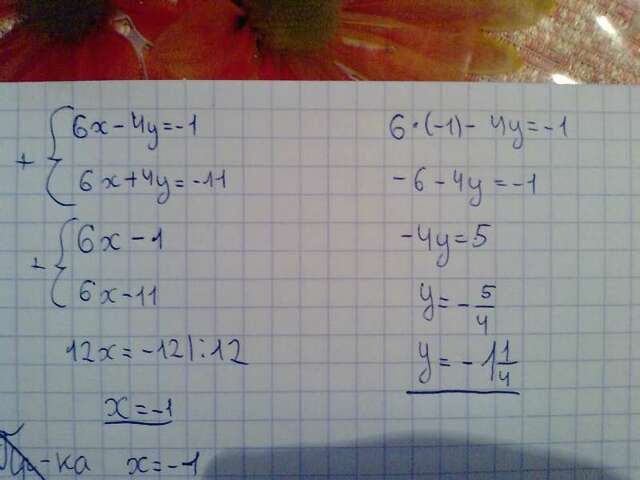 + { 6x - 4y = -1
{ 6x + 4y = -11
+ { 6x - 1
{ 6x - 11
12x = -12 | : 12
x = -1
-ka x = -1
6 · (-1) - 4y = -1
-6 - 4y = -1
-4y = 5
y = - 5/4
y = - 1 1/4